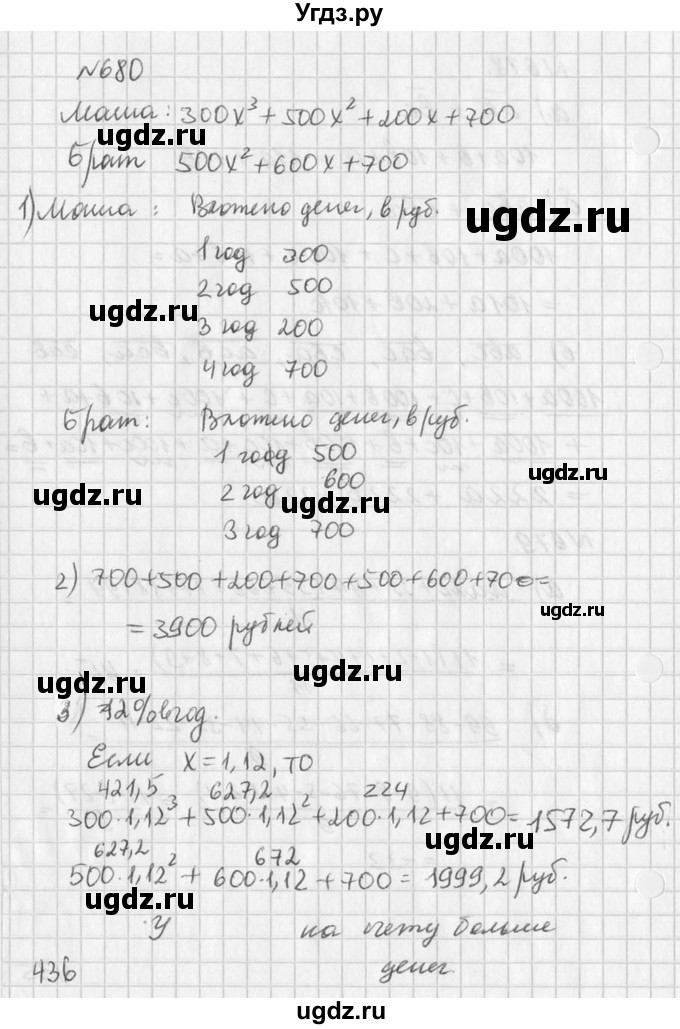 Угдз.ру
№680
Маша: 300x³ + 500x² + 200x + 700
ugdz.ru
Брат 500x² + 600x + 700
ugdz.ru
1) Маша: Вложено денег, в руб.
ugdz.ru
1 год 300
2 год 500
ugdz.ru
3 год 200
4 год 700
Брат: Вложено денег, в руб.
1 год 500
ugdz.ru
2 год 600
ugdz.ru ugdz.ru
3 год 700
2) 700+500+200+700+500+600+700=
ugdz.ru
= 3900 рублей
ugdz.ru
3) 12% в год.
Если x = 1,12, то
421,5 627,2 224
300·1,12³ + 500·1,12² + 200·1,12 + 700 = 1572,7 руб.
ugdz.ru
627,2 672
500·1,12² + 600·1,12 + 700 = 1999,2 руб.
ugdz.ru
У на счету больше
436 денег.
ugdz.ru
ugdz.ru